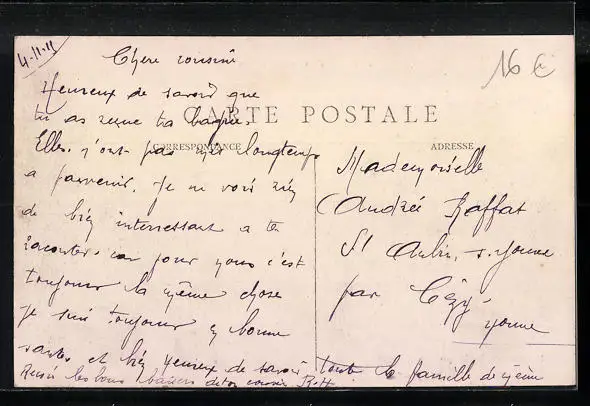 4-11-11
16 €
Chère cousine
Heureux de savoir que
tu as reçue ta bague.
CARTE POSTALE
CORRESPONDANCE
ADRESSE
Elles n'ont pas mis longtemps
a parvenir. Je ne vois rien
de bien interressant a te
raconter car pour nous c'est
toujours la même chose
je suis toujours en bonne
santée et bien heureux de savoir toute la famille de même
Recois les bons baisers de ton cousin
Mademoiselle
Andrée Raffat
St Aubin s. Yonne
par Cézy
Yonne